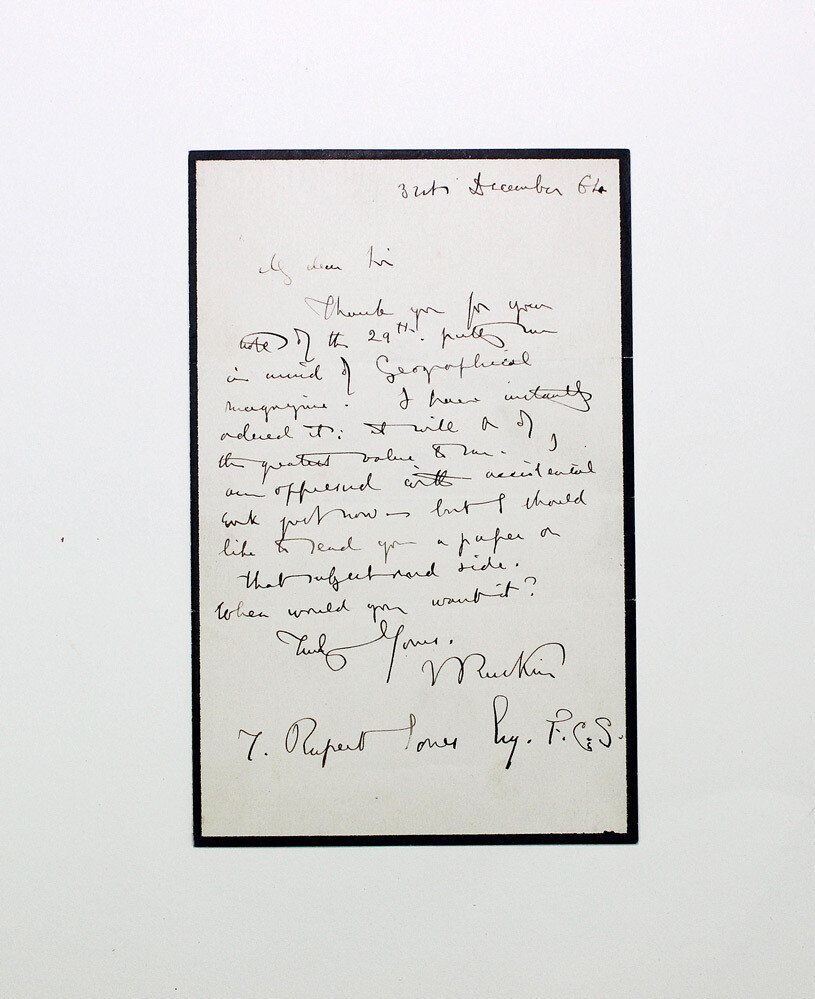 31st December 64
My dear Sir
Thank you for your
note of the 29th. putting me
in mind of Geographical
magazine. I have instantly
ordered it: it will be of
the greatest value to me. I
am oppressed with accidental
work just now – but I should
like to send you a paper on
that subject and side.
When would you want it?
Truly Yours.
J Ruskin
T. Rupert Jones Esq. F.G.S.